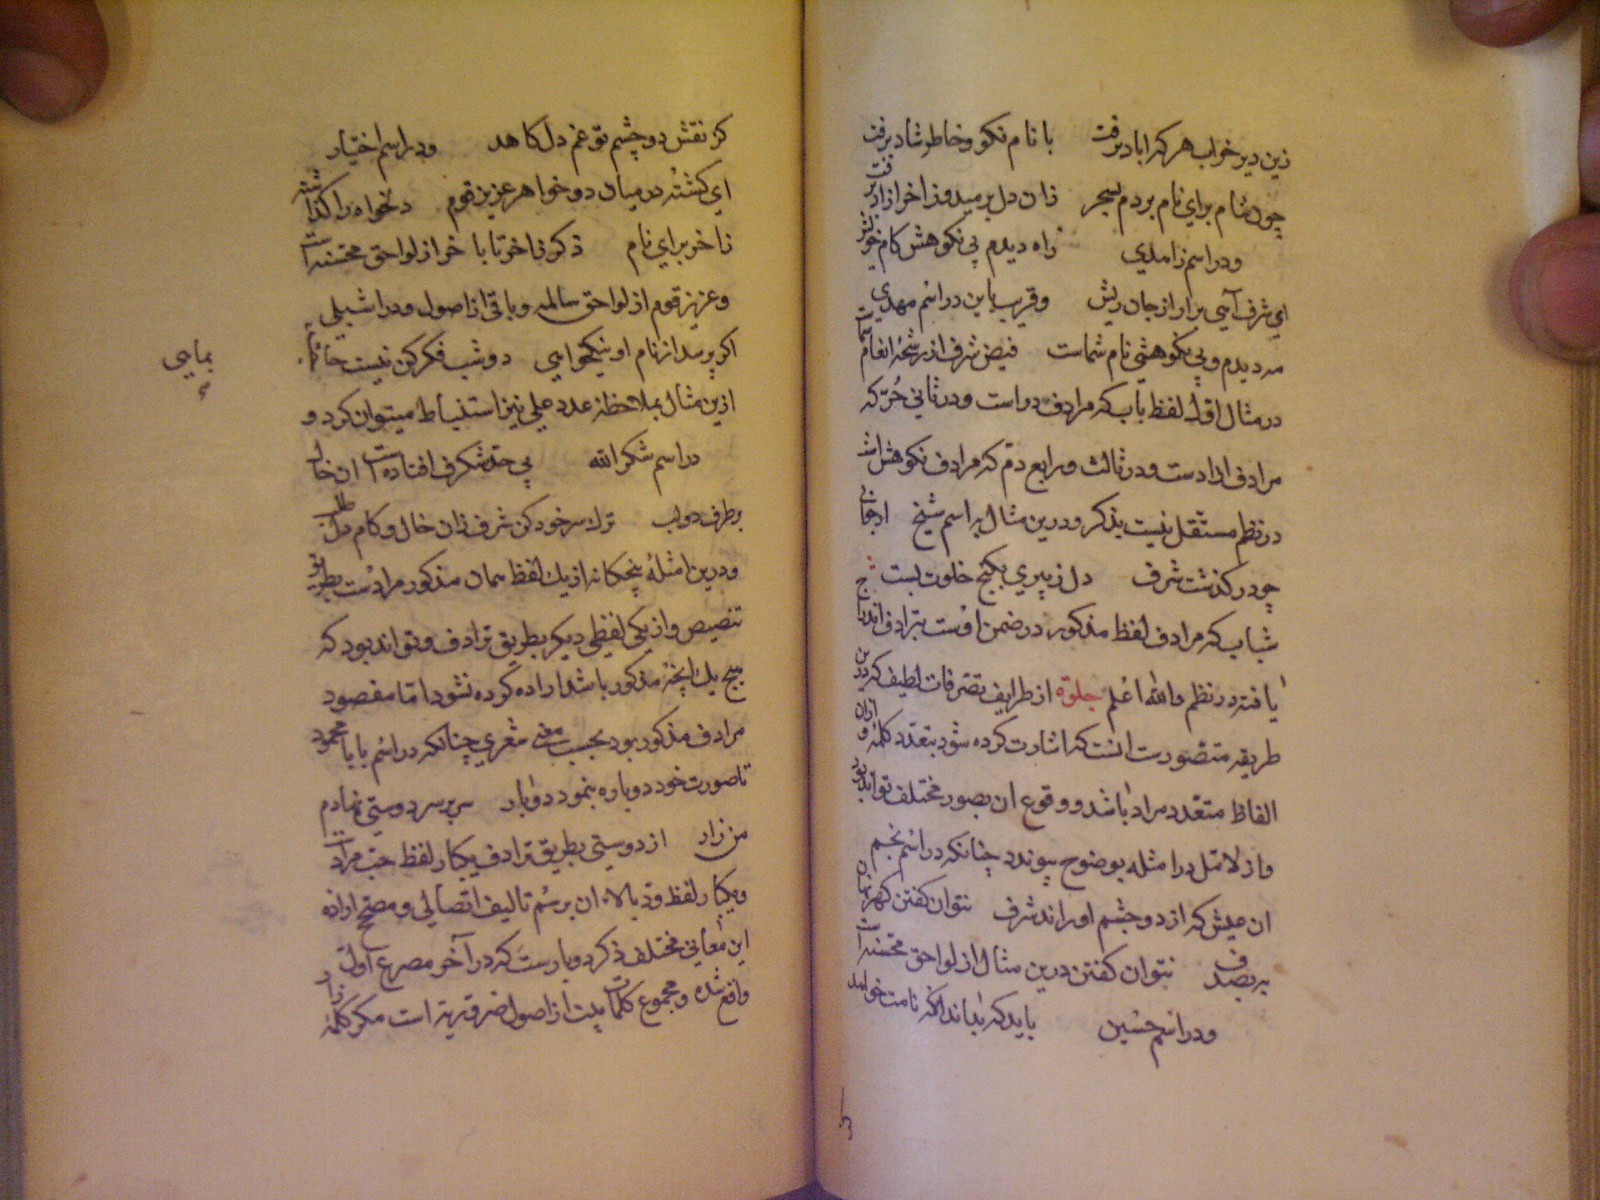 زین دیر خراب هر که اباد برفت با نام نکو و خاطر شاد برفت
چون نام برای نام بردم بسحر زان دل برمید و زاخر ازاد برفت
ودر اسم زاهدی راه دیدم پی نکوهش کام خویش
ای شرف آیی برار از جان ریش وقریب باین در اسم مهدی
مه دیدم و پی نکوهشی نام شماست فیض شرف از رشحه انعام شماست
در مثال اول لفظ باب که مرادف در است ودر ثانی حُرّ که
مرادف ازادست ودر ثالث ورابع ذم که مرادف نکوهش باشد
در نظم مستقل نیست بذکر ودرین مثال به اسم شیخ
چو در کذشت شرف دل ز پیری بکنج خلوت بست
شباب که مرادف لفظ مذکور در ضمن اوست بترادف اندراج
یافته در نظم والله اعلم جلوة از طرایف تصرفات لطیف که درین
طریقه متصورست انست که اشارت کرده شود بتعدد کلمهٔ و ازان
الفاظ متعدد مراد باشد و وقوع ان بصور مختلف تواند بود
واز تامل در امثله بوضوح پیوندد چنانکه در اسم نجم
ان عیش که از دو چشم او راند شرف نتوان کفتن
بربصدف نتوان کفتن درین مثال از لواحق محتسنه است
ودر اسم حسین باید که بداند انکه نامت خواند
کز نقش دو چشم تو غم دل کاهد ودر اسم اختیار
ای کشته در میان دو خواهر عزیز قوم دلخواه را کذاشته
زاخر برای نام ذکر زاخر تا با خر از لواحق محتسنه است
وعزیز قوم از لواحق سالمه وباقی از اصول ودر اسم علی
اکر پرسد از نام او نیکخوایی دو شب فکر کن نیست حاجت
بمایی
ازین مثال بملاحظهٔ عدد علی نیز استنباط میتوان کرد و
در اسم شکرالله پی حد شکرف افتاده است ان خال
بر طرف دو لب ترك سر خود کن شرف زان خال و کام دل طلب
ودرین امثلهٔ پنجکانه از یك لفظ همان مذکور مرادست بطریق
تنصیص واز یکی لفظی دیکر بطریق ترادف وتواند بود که
هیچ یك انچه مذکور باشد اراده کرده نشود اما مقصود
مرادف مذکور بود بحسب معنی شعری چنانکه در اسم بابا محمود
تا صورت خود دوباره بنمود دو بار سر بر سر دوستی نهادم
من زار از دوستی بطریق ترادف یکبار لفظ حب مرادست
ویکبار لفظ ود بالاء ان برسم تالیف اتصالی ومصحح اراده
این معانی مختلف ذکر دو بارست که در آخر مصرع اول
واقع شده ومجموع کلمات بیت از اصول ضروریه است مکر کلمهٔ زار